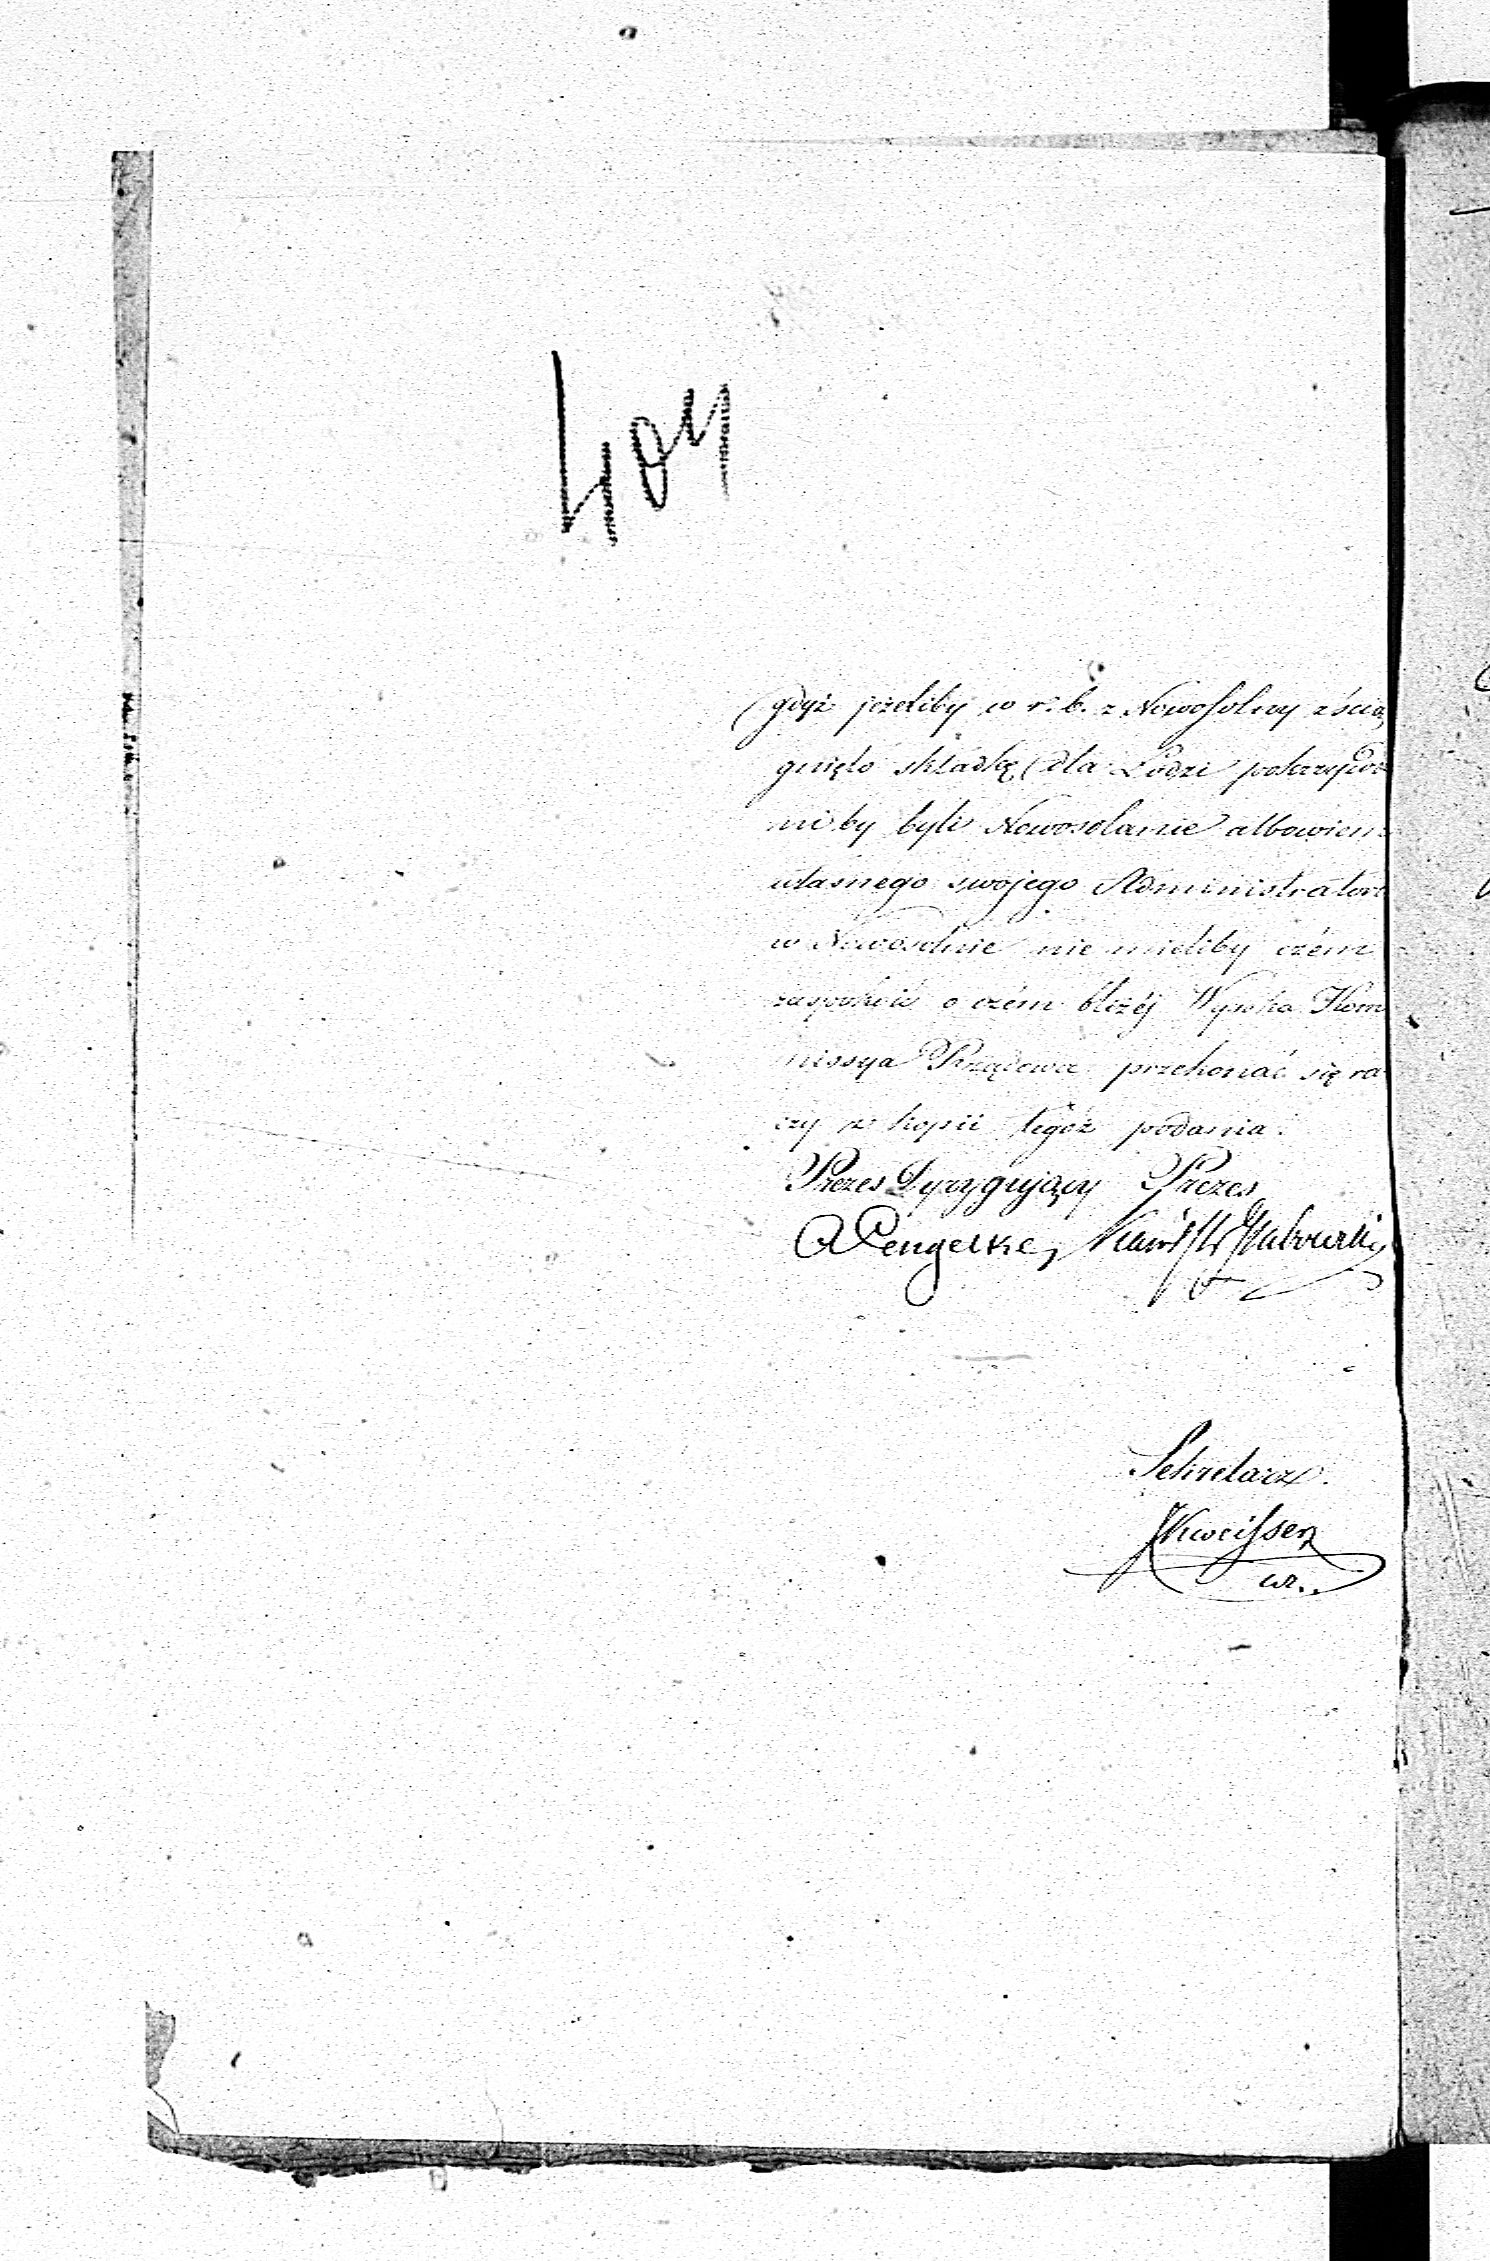 404
gdyż jeżeliby w r. b. z Nowosolny zścią
gnięto składkę dla Łodzi pokrzywdze
ni by byli Nowosolanie albowiem
własnego swojego Administratora
w Nowosolnie nie mieliby czém
zaspokoić o czém bliżéj Wysoka Kom
missya Rządowa przekonać się ra
czy z kopii tegoż podania.
Prezes Dyrygujący Prezes
Sekretarz
wz.